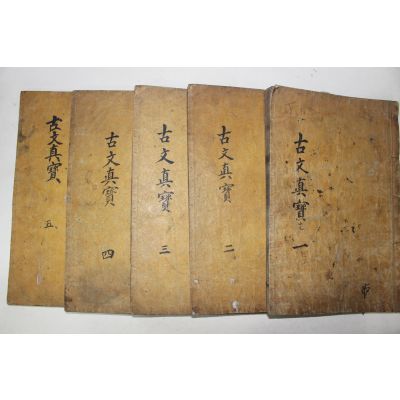 古文真寶 一
古文真寶 二
古文真寶 三
古文真寶 四
古文真寶 五